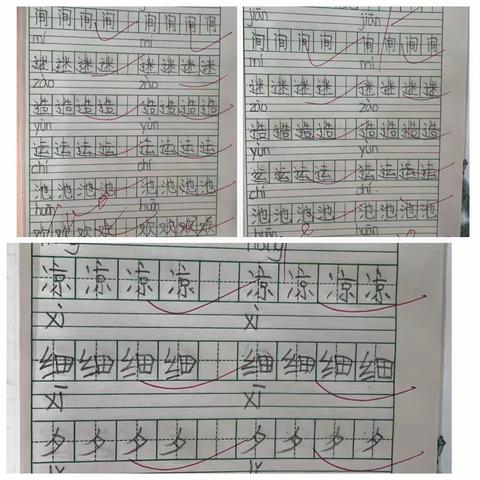 间 间 间 间 间 间 间 间
mí mí
迷 迷 迷 迷 迷 迷 迷 迷
zào zào
造 造 造 造 造 造 造 造
yùn yùn
运 运 运 运 运 运 运 运
chí chí
池 池 池 池 池 池 池 池
huān huān
欢 欢 欢 欢 欢 欢 欢
jiān jiān
间 间 间 间 间 间 间 间
mí mí
迷 迷 迷 迷 迷 迷 迷 迷
zào zào
造 造 造 造 造 造 造 造
yùn yùn
运 运 运 运 运 运 运 运
chí chí
池 池 池 池 池 池 池 池
huān huān
凉 凉 凉 凉 凉 凉 凉 凉
xì xì
细 细 细 细 细 细 细 细
xī xī
夕 夕 夕 夕 夕 夕 夕 夕